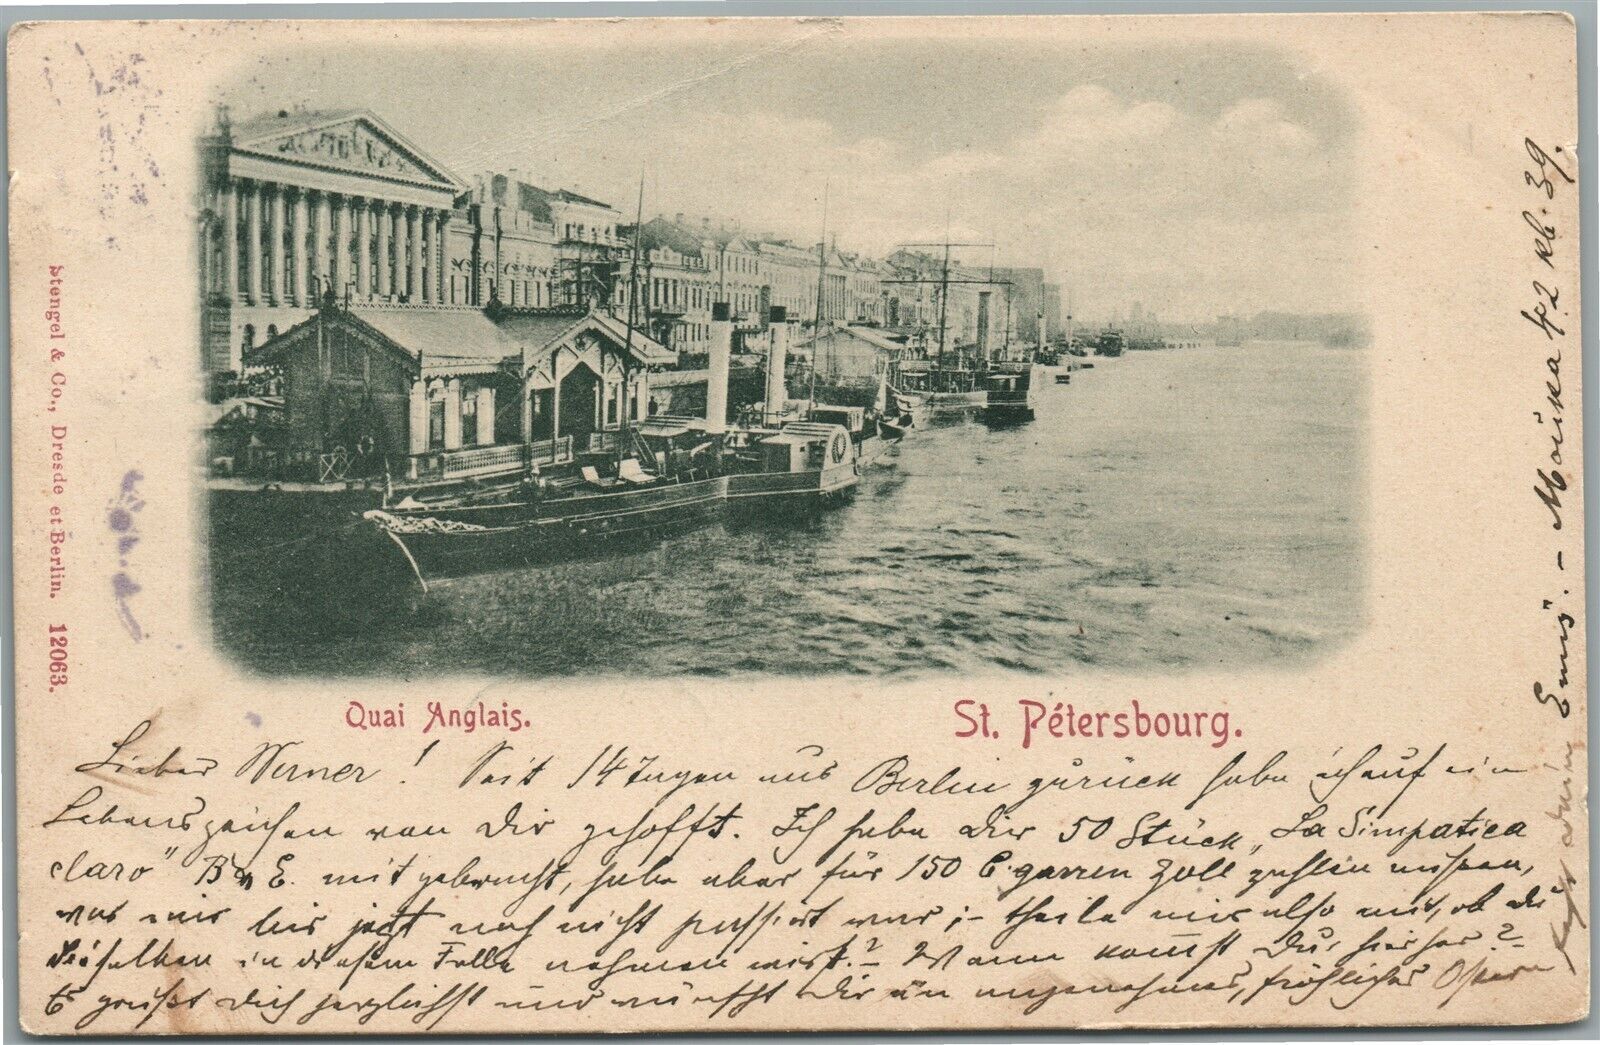 Stengel & Co., Dresde et Berlin. 12063.
Quai Anglais.
St. Pétersbourg.
Lieber Werner! Seit 14 Tagen aus Berlin zurück habe ich auf ein
Lebenszeichen von Dir gehofft. Ich habe Dir 50 Stück „La Simpatica
claro" B E. mitgebracht, habe aber für 150 Cigarren Zoll zahlen müssen,
was mir bis jetzt noch nicht passiert war; – theile mir also mit, ob du
dieselben in diesem Falle nehmen wirst? – Wann kommst Du hierher? –
Es grüßt Dich herzlichst und wünscht Dir ein angenehmes, fröhliches Ostern
dein Emis". – Мойка 42 кв. 39.